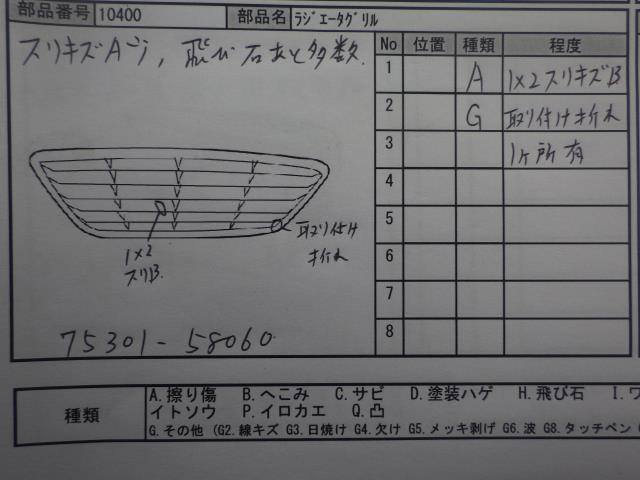 部品番号 10400 部品名 ラジエータグリル
スリキズA 、飛び石あと多数.
No 位置 種類 程度
1 A 1×2スリキズB
2 G 取り付け折れ
3 1ヶ所有
4
5
6
7
8
1×2
スリB.
取り付け
折れ
75301-58060
種類
A.擦り傷 B.へこみ C.サビ D.塗装ハゲ H.飛び石 I.ワ
イトソウ P.イロカエ Q.凸
G.その他 (G2.線キズ G3.日焼け G4.欠け G5.メッキ剥げ G6.波 G8.タッチペン